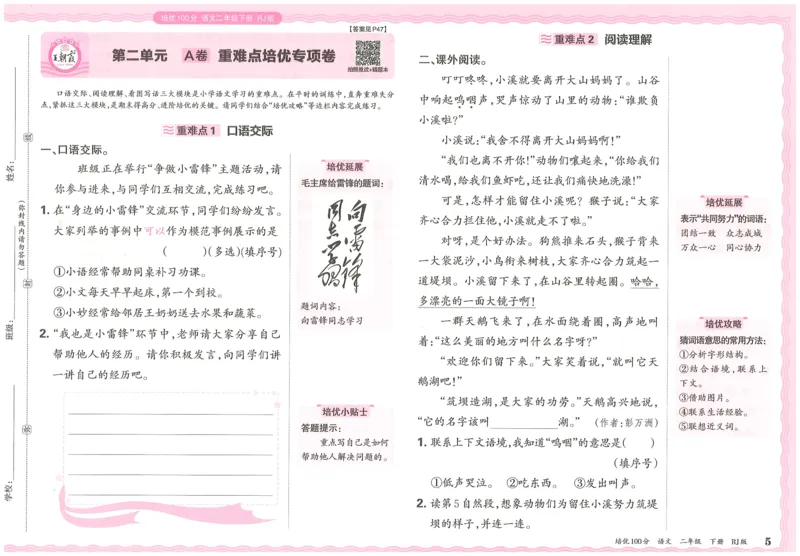 培优100分 语文二年级下册 RJ版
【答案见P47】
王朝霞
第二单元 A卷 重难点培优专项卷
拍照批改+错题本
口语交际、阅读理解、看图写话三大模块是小学语文学习的重难点。在平时的训练中,直奔重难失分
点,紧抓这三大模块,是期末得高分、进阶培优的关键。请同学们结合“培优攻略”等边栏内容完成练习。
重难点1 口语交际
一、口语交际。
班级正在举行“争做小雷锋”主题活动,请
你参与进来,与同学们互相交流,完成练习吧。
1. 在“身边的小雷锋”交流环节,同学们纷纷发言。
大家列举的事例中可以作为模范事例展示的是
( )(多选)(填序号)
①小语经常帮助同桌补习功课。
②小文每天早早起床,第一个到校。
③小妙经常给邻居王奶奶送去水果和蔬菜。
2. “我也是小雷锋”环节中,老师请大家分享自己
帮助他人的经历。请你积极发言,向同学们讲
一讲自己的经历吧。
培优延展
毛主席给雷锋的题词:
向雷锋
同志学习
题词内容:
向雷锋同志学习
培优小贴士
答题提示:
重点写自己是如何
帮助他人解决问题的。
姓名:
班级:
学校:
(弥封线内请勿答题)
重难点2 阅读理解
二、课外阅读。
叮叮咚咚,小溪就要离开大山妈妈了。山谷
中响起呜咽声,哭声惊动了山里的动物:“谁欺负
小溪啦?”
小溪说:“我舍不得离开大山妈妈啊!”
“我们也离不开你!”动物们嚷起来,“你给我们
清水喝,给我们鱼虾吃,还让我们痛快地洗澡!”
可是,怎样才能留住小溪呢?猴子说:“大家
齐心合力拦住他,小溪就走不了啦。”
对呀,是个好办法。狗熊推来石头,猴子背来
一大袋泥沙,小鸟衔来树枝,大家齐心合力筑起一
道堤坝。小溪留下来了,在山谷里转起圈。哈哈,
多漂亮的一面大镜子啊!
一群天鹅飞来了,在水面绕着圈,高声地叫
着:“这么美丽的地方叫什么名字呀?”
“欢迎你们留下来。”大家笑着说,“就叫它天
鹅湖吧!”
“筑坝造湖,是大家的功劳。”天鹅高兴地说,
“它的名字该叫 湖。” (作者:彭万洲)
1. 联系上下文语境,我知道“呜咽”的意思是( )
(填序号)
①低声哭泣。 ②吃东西。 ③发出叫声。
2. 读第5自然段,想象动物们为留住小溪努力筑堤
坝的样子,并连一连。
培优延展
表示“共同努力”的词语:
团结一致 众志成城
万众一心 同心协力
培优攻略
猜词语意思的常用方法:
①分析字形结构。
②结合语境,联系上
下文。
③借助图片。
④联系生活经验。
⑤联想近义词。
培优100分 语文 二年级 下册 RJ版 5